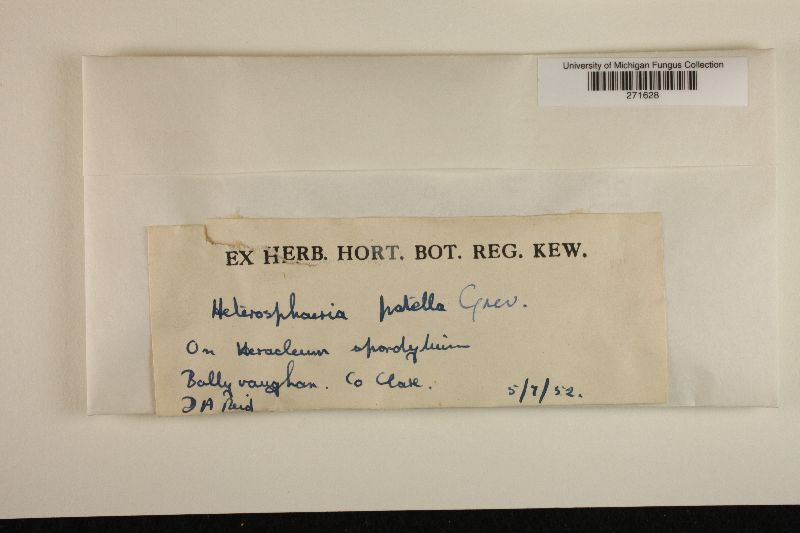 University of Michigan Fungus Collection
271628
EX HERB. HORT. BOT. REG. KEW.
Heterosphaeria patella Grev.
On Heracleum spondylium
Ballyvaughan. Co Clare.
5/7/52.
D A Reid